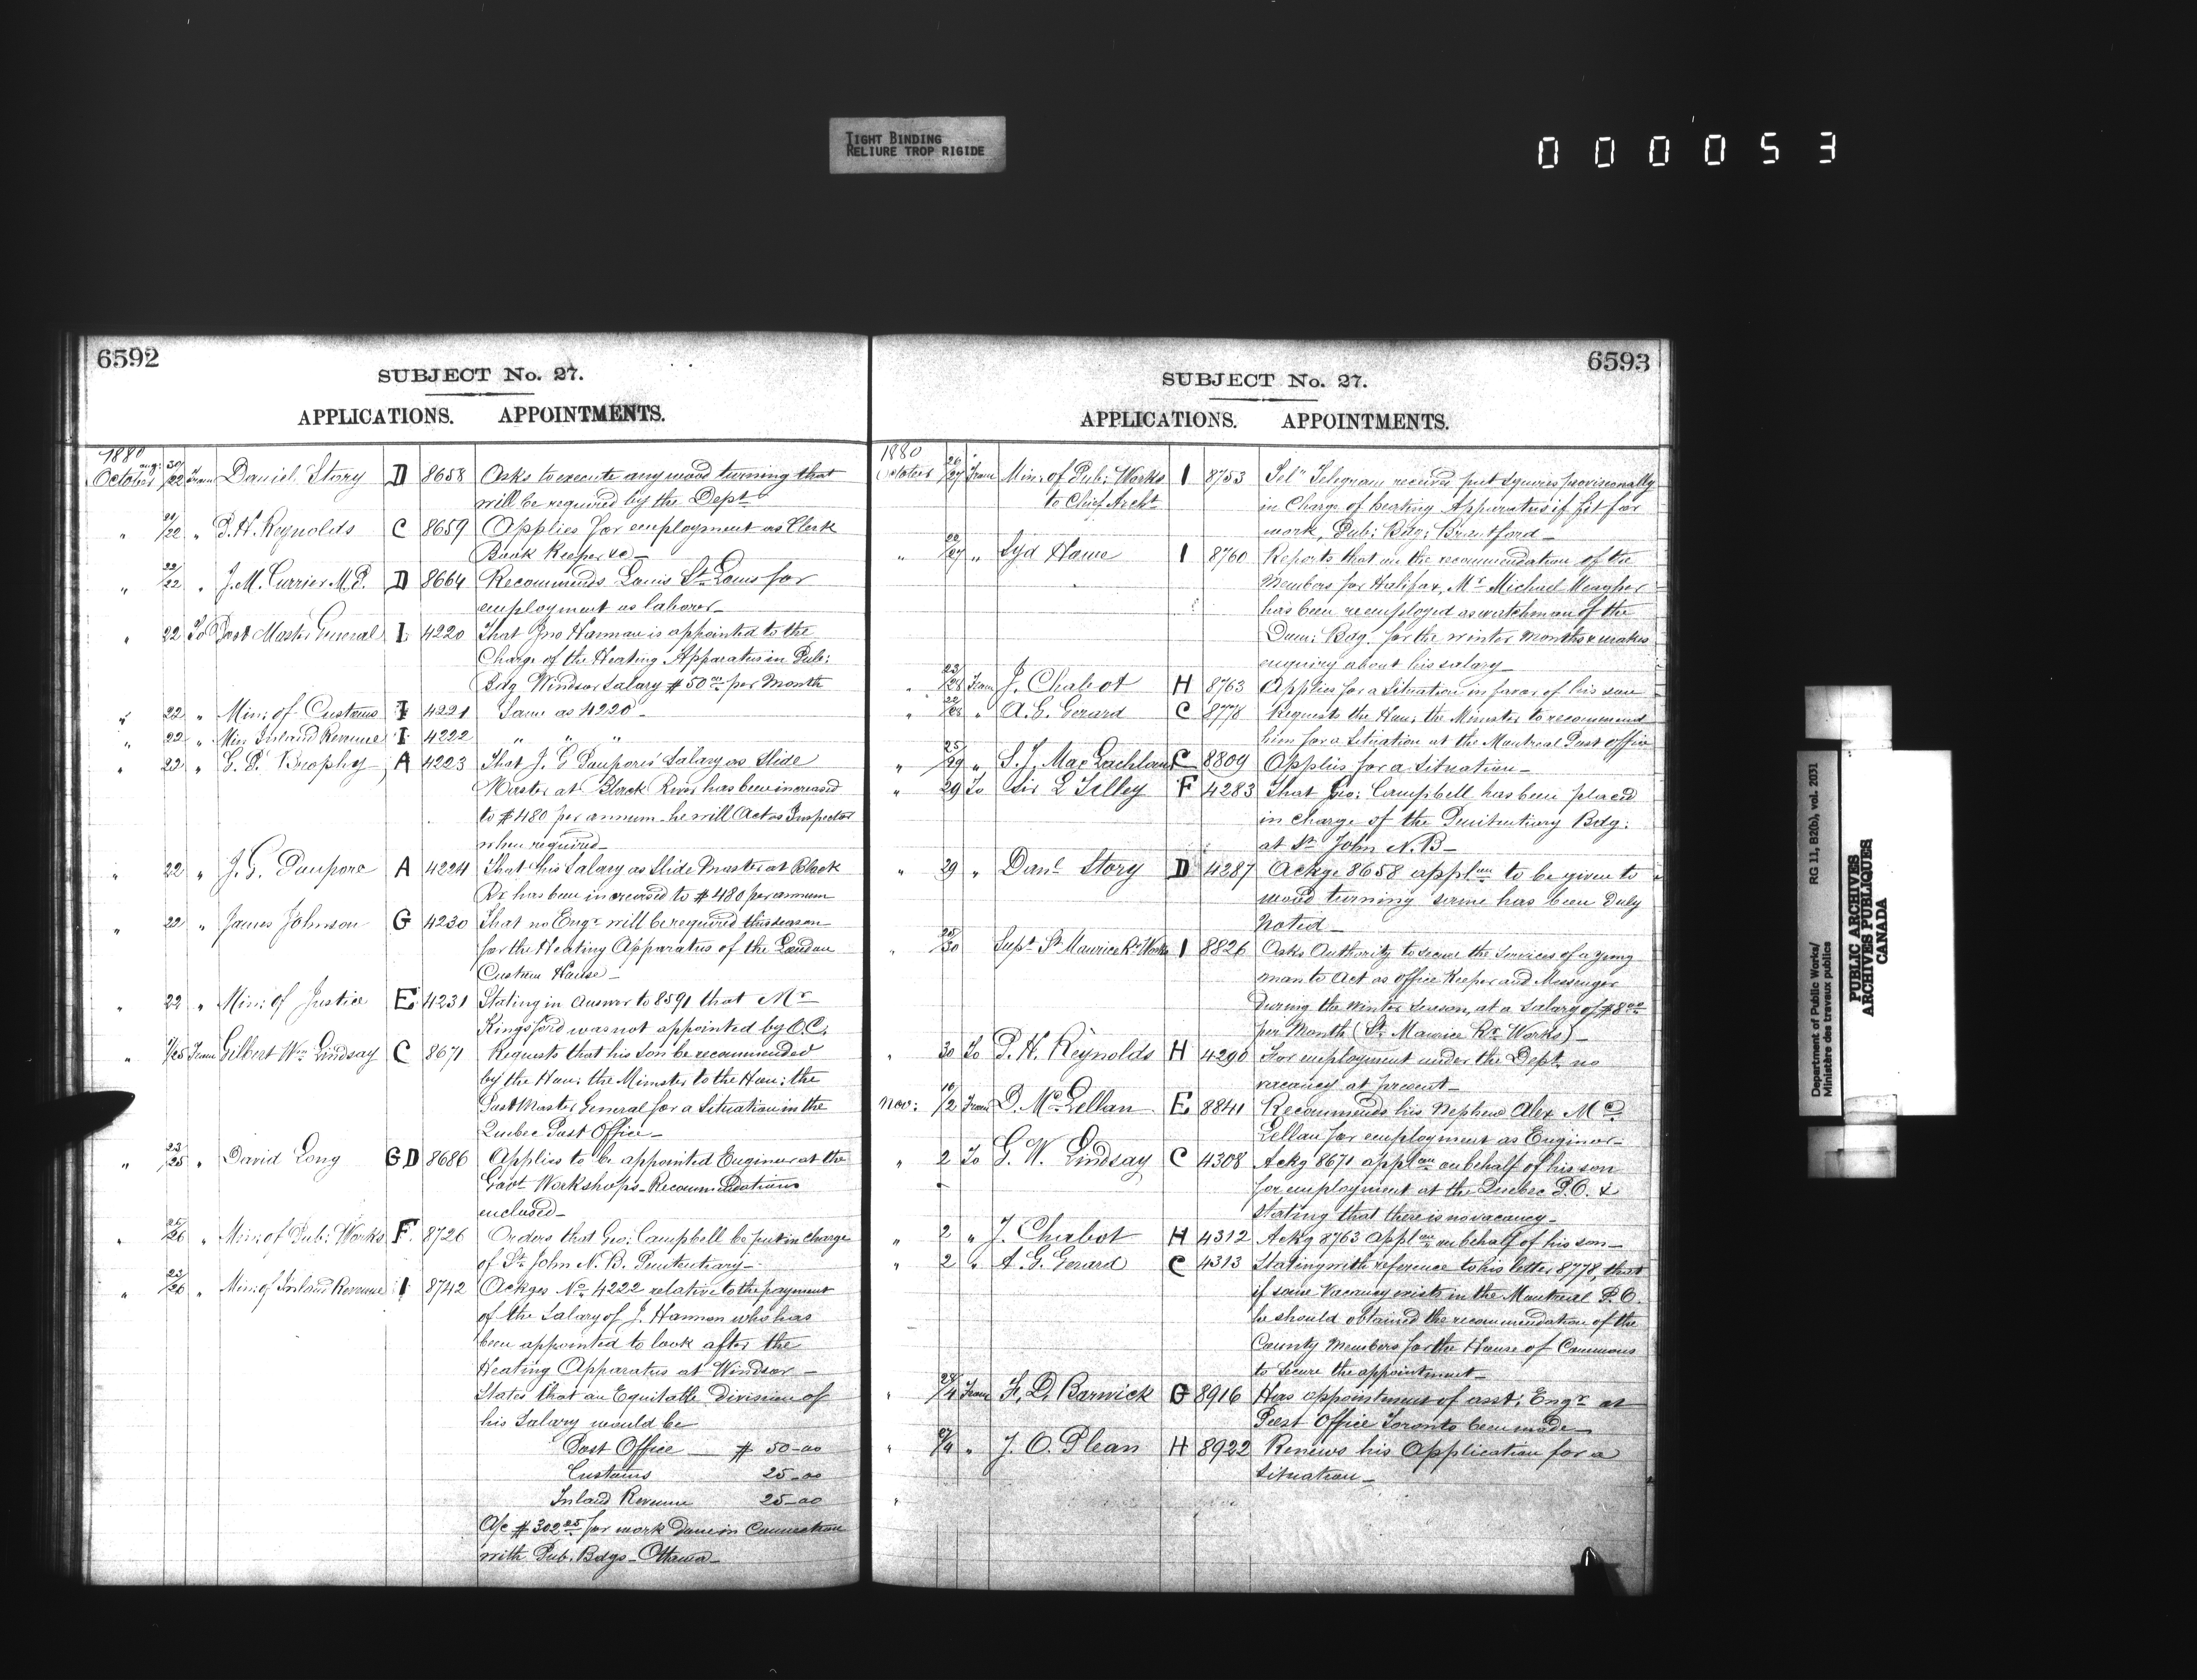 TIGHT BINDING
RELIURE TROP RIGIDE
000053
6592
SUBJECT No. 27.
APPLICATIONS. APPOINTMENTS.
1880
October Aug: 30/22 From Daniel Story D 8658 Asks to execute any wood turning that
will be required by the Dept
" 21/22 " P. H. Reynolds C 8659 Applies for employment as Clerk
Book Keeper &c _
" 22/22 " J. M. Currier M.P. D 8664 Recommends Louis St. Louis for
employment as laborer _
" 22 To Post Master General I 4220 That Jno Harman is appointed to the
Charge of the Heating Apparatus in Pub:
Bdg Windsor Salary $50 00 per Month
" 22 " Min: of Customs I 4221 Same as 4220 _
" 22 " Min Inland Revenue I 4222 " " "
" 22 " G. P. Brophy A 4223 That J. G Poupore's Salary as Slide
Master at Black River has been increased
to $480 per annum _ he will Act as Inspector
when required _
" 22 " J. G. Poupore A 4224 That his Salary as Slide Master at Black
Rr has been increased to $480 per annum
" 22 " James Johnson G 4230 That no Engr will be required this season
for the Heating Apparatus of the London
Custom House _
" 22 " Min: of Justice E 4231 Stating in answer to 8591 that Mr
Kingsford was not appointed by O.C.
" /25 From Gilbert Wm Lindsay C 8671 Requests that his son be recommended
by the Hon: the Minister to the Hon: the
Post Master General for a Situation in the
Quebec Post Office _
" 23/25 " David Long G D 8686 Applies to be appointed Engineer at the
Govt Workshops _ Recommendations
enclosed _
" 25/26 " Min: of Pub: Works F. 8726 Orders that Geo: Campbell be put in charge
of St. John N. B. Penitentiary _
" 23/26 " Min: of Inland Revenue I 8742 Ackges No 4222 relative to the payment
of the Salary of J. Harmon who has
been appointed to look after the
Heating Apparatus at Windsor _
States that an Equitable Division of
his Salary would be
Post Office _ $ 50_00
Customs 25_00
Inland Revenue 25_00
A/c $302 25 for work done in Connection
with Pub. Bdgs _ Ottawa _
6593
SUBJECT No. 27.
APPLICATIONS. APPOINTMENTS.
1880
October 26/27 From Min: of Pub: Works I 8753 Telegram received put Squires provisionally
to Chief Archt in Charge of heating Apparatus if fit for
work, Pub: Bdg: Brantford _
" 22/27 " Syd Howe I 8760 Reports that on the recommendation of the
Members for Halifax, Mr Michael Meagher
has been reemployed as watchman of the
Dom: Bdg. for the winter months & makes
enquiry about his salary _
" 23/28 From J. Chabot H 8763 Applies for a Situation in favor of his son
" /28 " A. G. Gerard C 8778 Requests the Hon: the Minister to recommend
him for a Situation at the Montreal Post Office
" 25/29 " S. J. MacLachlan C 8809 Applies for a Situation _
" 29 To Sir L Tilley F 4283 That Geo: Campbell has been placed
in charge of the Penitentiary Bdg:
at St. John N. B _
" 29 " Danl Story D 4287 Ackge 8658 appl on to be given to
wood turning same has been Duly
Noted _
" 28/30 Supt St Maurice Rr Works I 8826 Asks Authority to secure the Services of a young
man to Act as Office Keeper and Messenger
During the Winter Season, at a Salary of $8 00
per Month (St. Maurice Rr Works) _
" 30 To P. H. Reynolds H 4290 For employment under the Dept. no
vacancy at present _
Nov: /2 From D. McLellan E 8841 Recommends his Nephew Alex Mc
Lellan for employment as Engineer _
" 2 To G. W. Lindsay C 4308 Ackg 8671 applon on behalf of his son
for employment at the Quebec P.O. &
stating that there is no vacancy _
" 2 " J. Chabot H 4312 Ackg 8763 applon on behalf of his son _
" 2 " A. G. Gerard C 4313 Stating with reference to his letter 8778, that
if some Vacancy exists in the Montreal P.O.
he should obtained the recommendation of the
County Members for the House of Commons
to secure the appointment _
" 28/4 From F. D. Barwick G 8916 Has appointment of asst: Engr at
Post Office Toronto been made _
" 27/4 " J. O. Plean H 8922 Renews his Application for a
Situation _
Department of Public Works/ RG 11, B2(b), vol. 2031
Ministère des travaux publics
PUBLIC ARCHIVES
ARCHIVES PUBLIQUES
CANADA